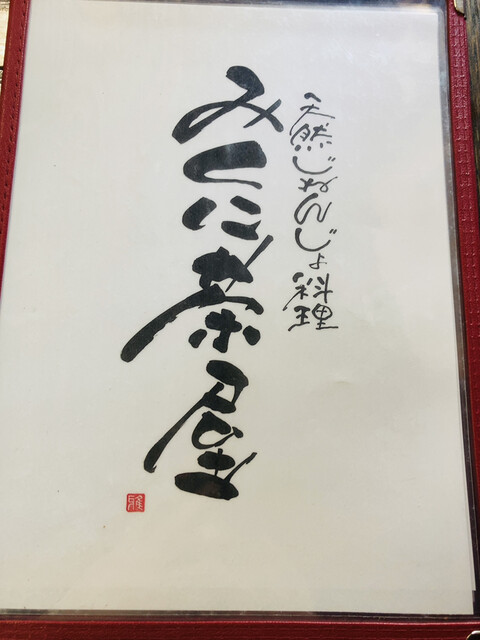 天然じねんじょ料理
みくに茶屋
雅